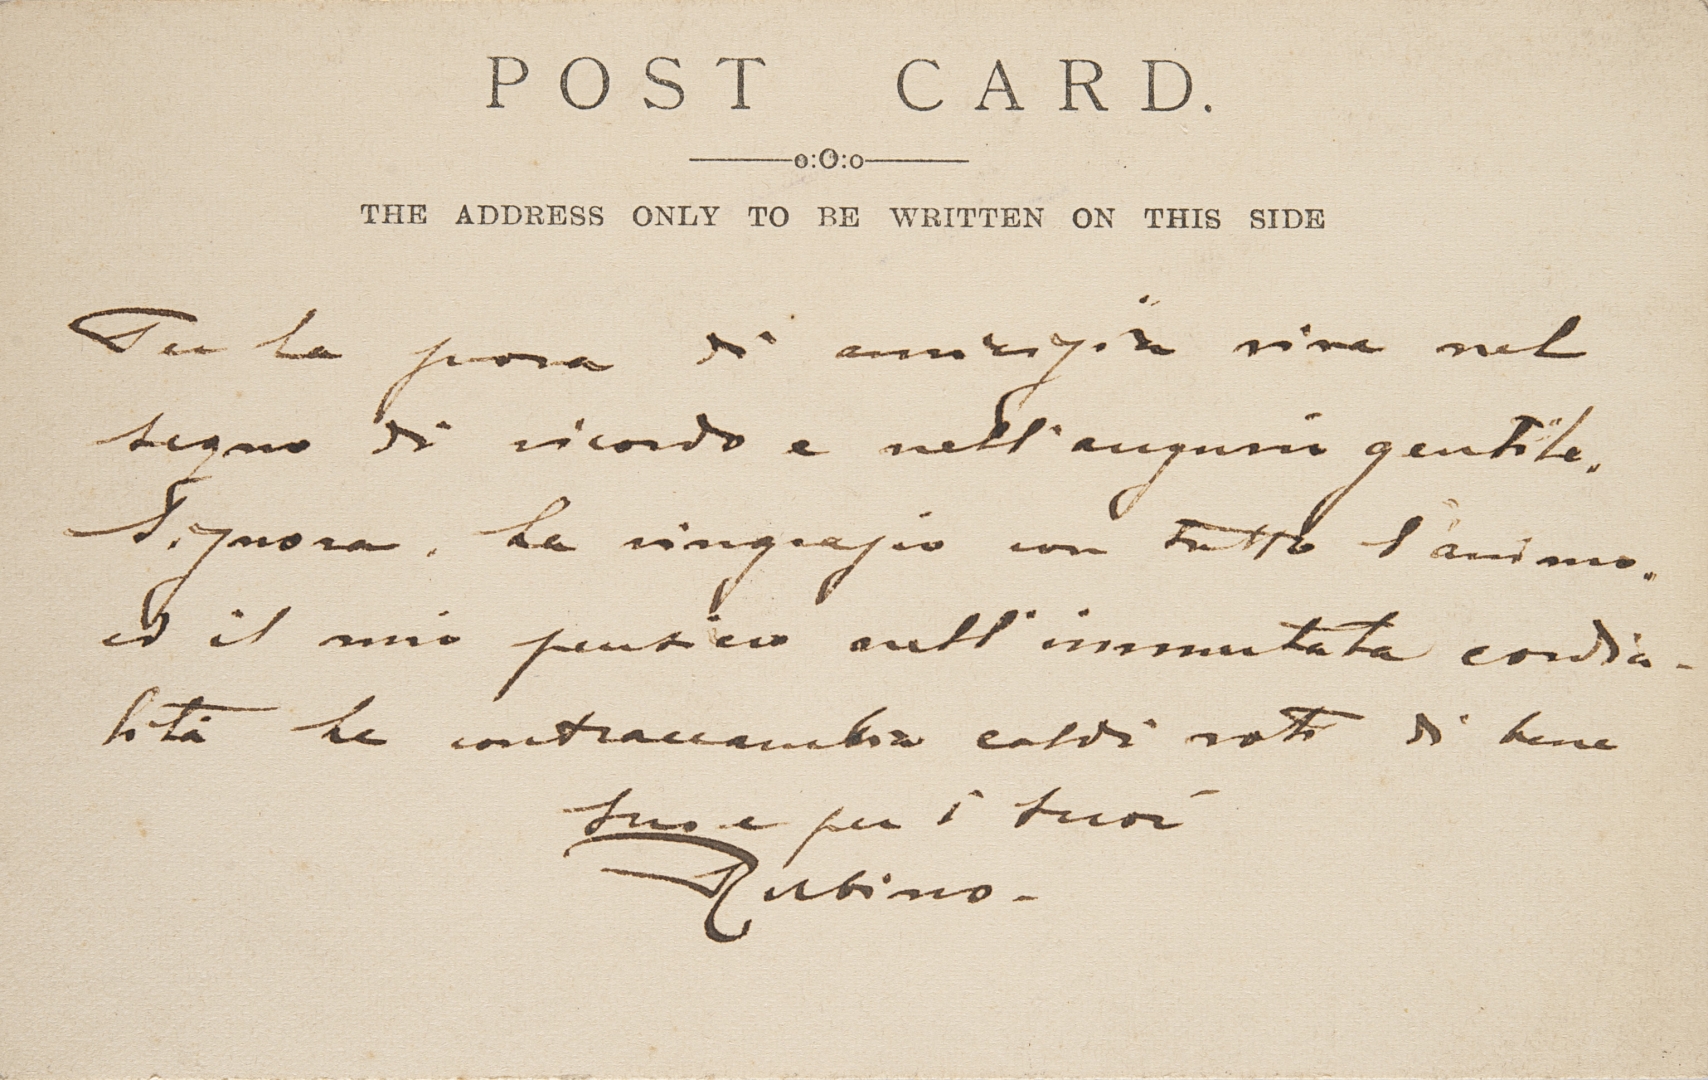 POST CARD.
o:O:o
THE ADDRESS ONLY TO BE WRITTEN ON THIS SIDE
Per la prova di amicizia viva nel
segno di ricordo e nell'augurio gentile,
Signora, la ringrazio con tutto l'animo,
ed il mio pensiero nell'immutata cordia-
lità le contraccambia caldi voti di bene
suo e per i suoi
Rubino-